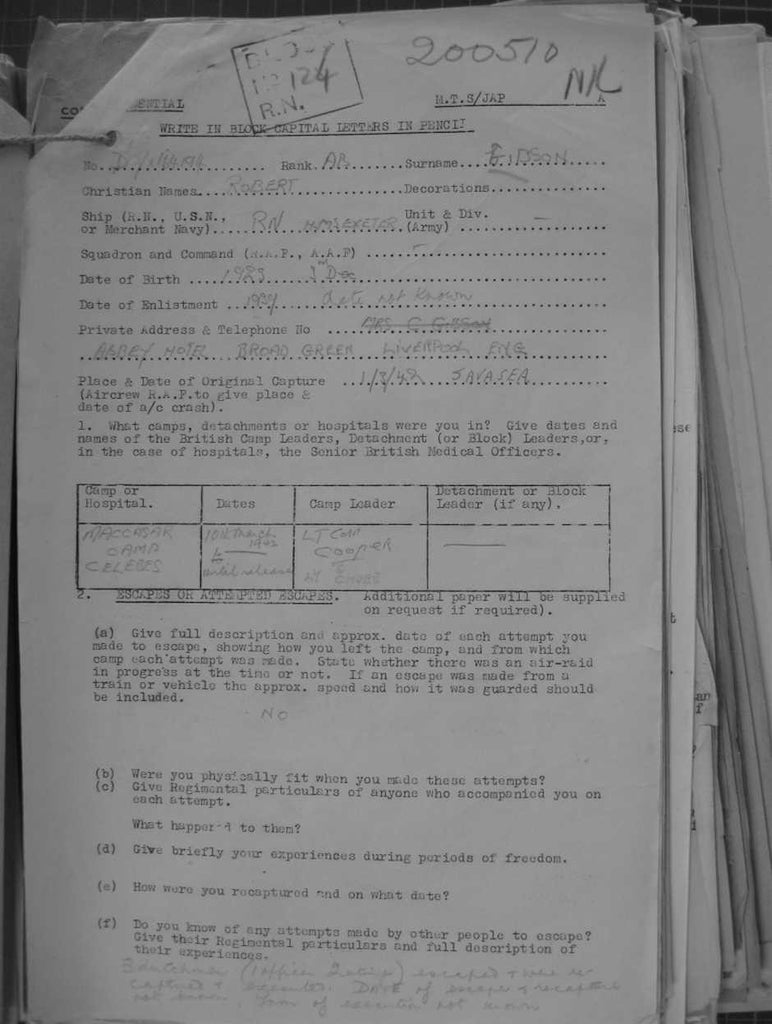 200510
124
R.N.
NIL
M.T.S/JAP
WRITE IN BLOCK CAPITAL LETTERS IN PENCIL
No. Rank. AB Surname
Christian Names. ROBERT Decorations
Ship (R.N., U.S.N., Unit & Div. —
or Merchant Navy) RN HMS EXETER (Army)
Squadron and Command (R.A.F., A.A.F) —
Date of Birth 1923 1 Dec
Date of Enlistment 1939 date not known
Private Address & Telephone No MRS C GIBSON
ABBEY HOTEL BROAD GREEN LIVERPOOL ENG
Place & Date of Original Capture 1/3/42 JAVASEA
(Aircrew R.A.F. to give place &
date of a/c crash).
1. What camps, detachments or hospitals were you in? Give dates and
names of the British Camp Leaders, Detachment (or Block) Leaders, or,
in the case of hospitals, the Senior British Medical Officers.
Camp or Hospital. Dates Camp Leader Detachment or Block Leader (if any).
MACCASAR 10th March LT COM
CAMP 1942 COOPER —
CELEBES until release
2. ESCAPES OR ATTEMPTED ESCAPES. Additional paper will be supplied
on request if required).
(a) Give full description and approx. date of each attempt you
made to escape, showing how you left the camp, and from which
camp each attempt was made. State whether there was an air-raid
in progress at the time or not. If an escape was made from a
train or vehicle the approx. speed and how it was guarded should
be included.
NO
(b) Were you physically fit when you made these attempts?
(c) Give Regimental particulars of anyone who accompanied you on
each attempt.
What happened to them?
(d) Give briefly your experiences during periods of freedom.
(e) How were you recaptured and on what date?
(f) Do you know of any attempts made by other people to escape?
Give their Regimental particulars and full description of
their experiences.
3 Dutchmen (1 officer 2 ratings) escaped & were re
captured & executed. Date of escape & recapture
not known. Form of execution not known